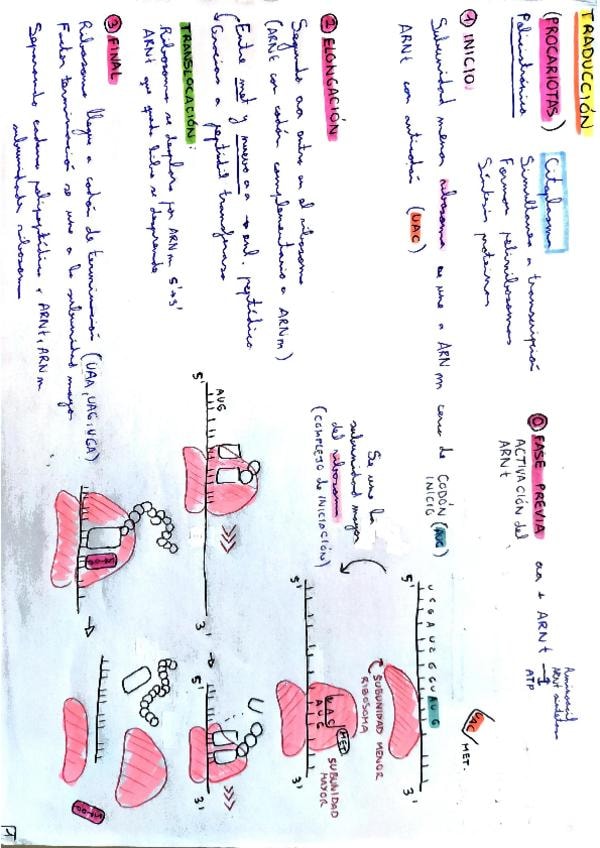 TRADUCCIÓN
(PROCARIOTAS)
Policistrónica
Citoplasma
Simultánea a transcripción
Forman polirribosomas
Síntesis proteínas
⓪ FASE PREVIA
ACTIVACIÓN del
ARNt
aa + ARNt →
Aminoacil
ARNt sintetasa
ATP
① INICIO
Subunidad menor ribosoma se une a ARNm cerca de CODÓN (AUG)
INICIO
ARNt con anticodón (UAC)
UAC
MET.
5'
AUG
3'
SUBUNIDAD MENOR
RIBOSOMA
Se une la
subunidad mayor
del ribosoma
(COMPLEJO de INICIACIÓN)
5'
UAC
AUG
MET
3'
SUBUNIDAD
MAYOR
② ELONGACIÓN
Segundo aa entra en el ribosoma
(ARNt con codón complementario a ARNm)
Entre met y nuevo aa → enl. peptídico
Gracias a peptidil transferasa
TRANSLOCACIÓN:
Ribosoma se desplaza por ARNm 5'→3'
ARNt que queda libre se desprende
5'
AUG
3'
5'
3'
③ FINAL
Ribosoma llega a codón de terminación (UAA, UAG, UGA)
Factor terminación se une a la subunidad mayor
Separando cadena polipeptídica, ARNt, ARNm
subunidades ribosoma